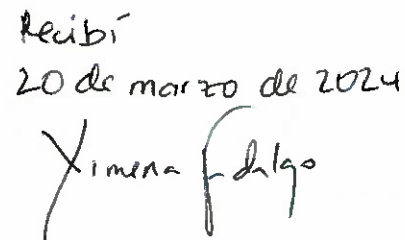 Recibí
20 de marzo de 2024
Ximena Fidalgo